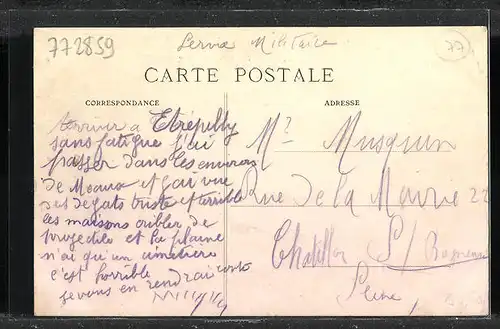 772859
Service Militaire
77
CARTE POSTALE
CORRESPONDANCE
ADRESSE
arriver a Etrépilly
sans fatigue j'ai
passer dans les environs
de Meaux et j'ai vue
des degats triste et terrible
les maisons cribler de
projectile et la plaine
n'ai qu'un cimetière
c'est horrible
je vous en rendrai conte
Mr Musquin
Rue de la Mairie 22
Chatillon S/ Bagneux
Seine